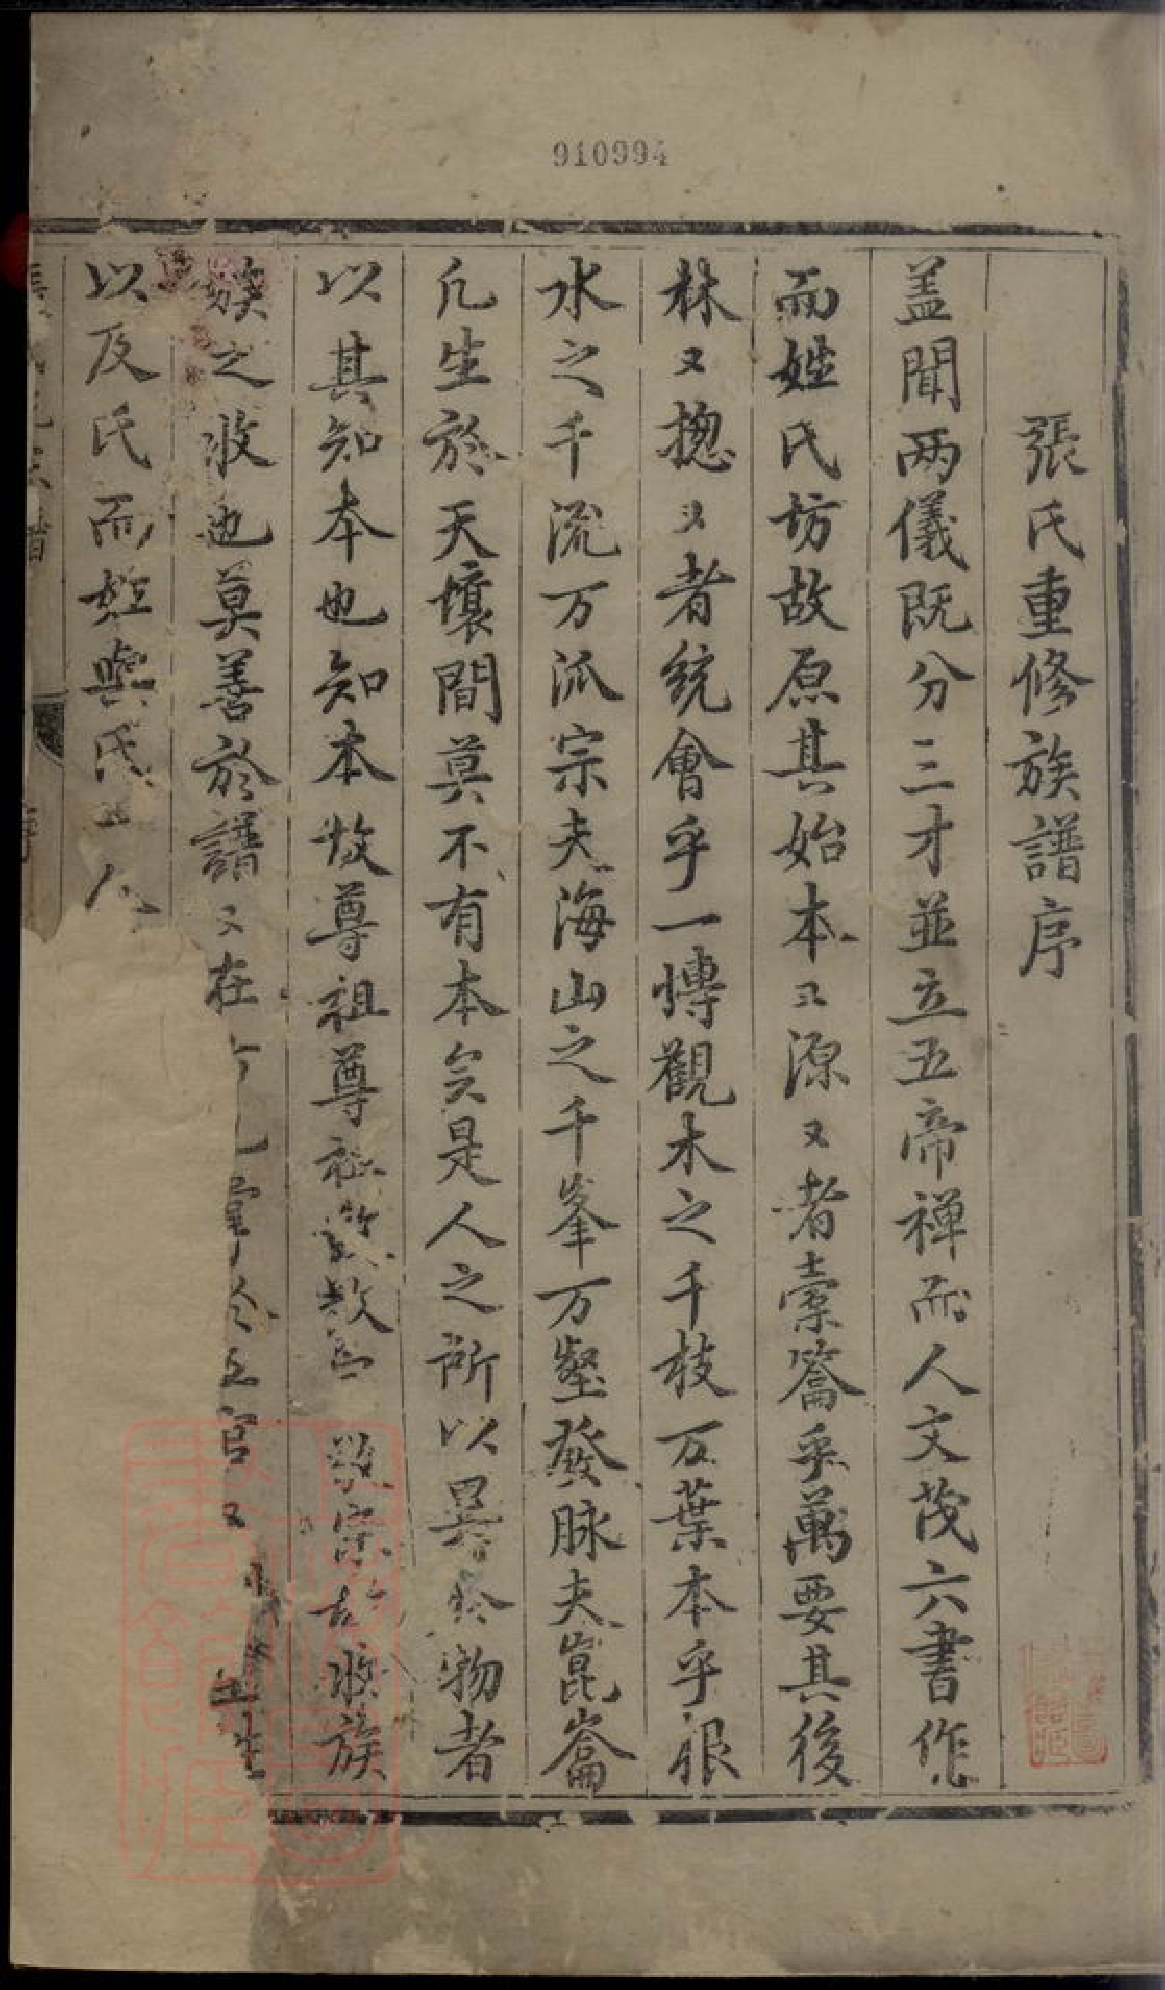 910994
張氏重修族譜序
盖聞两儀既分三才並立五帝禅而人文茂六書作
而姓氏坊故原其始本〻源〻者橐籥乎萬要其後
林〻揔〻者統會乎一慱觀木之千枝万葉本乎根
水之千流万派宗夫海山之千峯万壑發脉夫崑崙
凡生於天壤間莫不有本矣是人之所以異於物者
以其知本也知本故尊祖尊祖故敬宗故收族
族之收也莫善於譜〻在
以及氏而姓與氏人